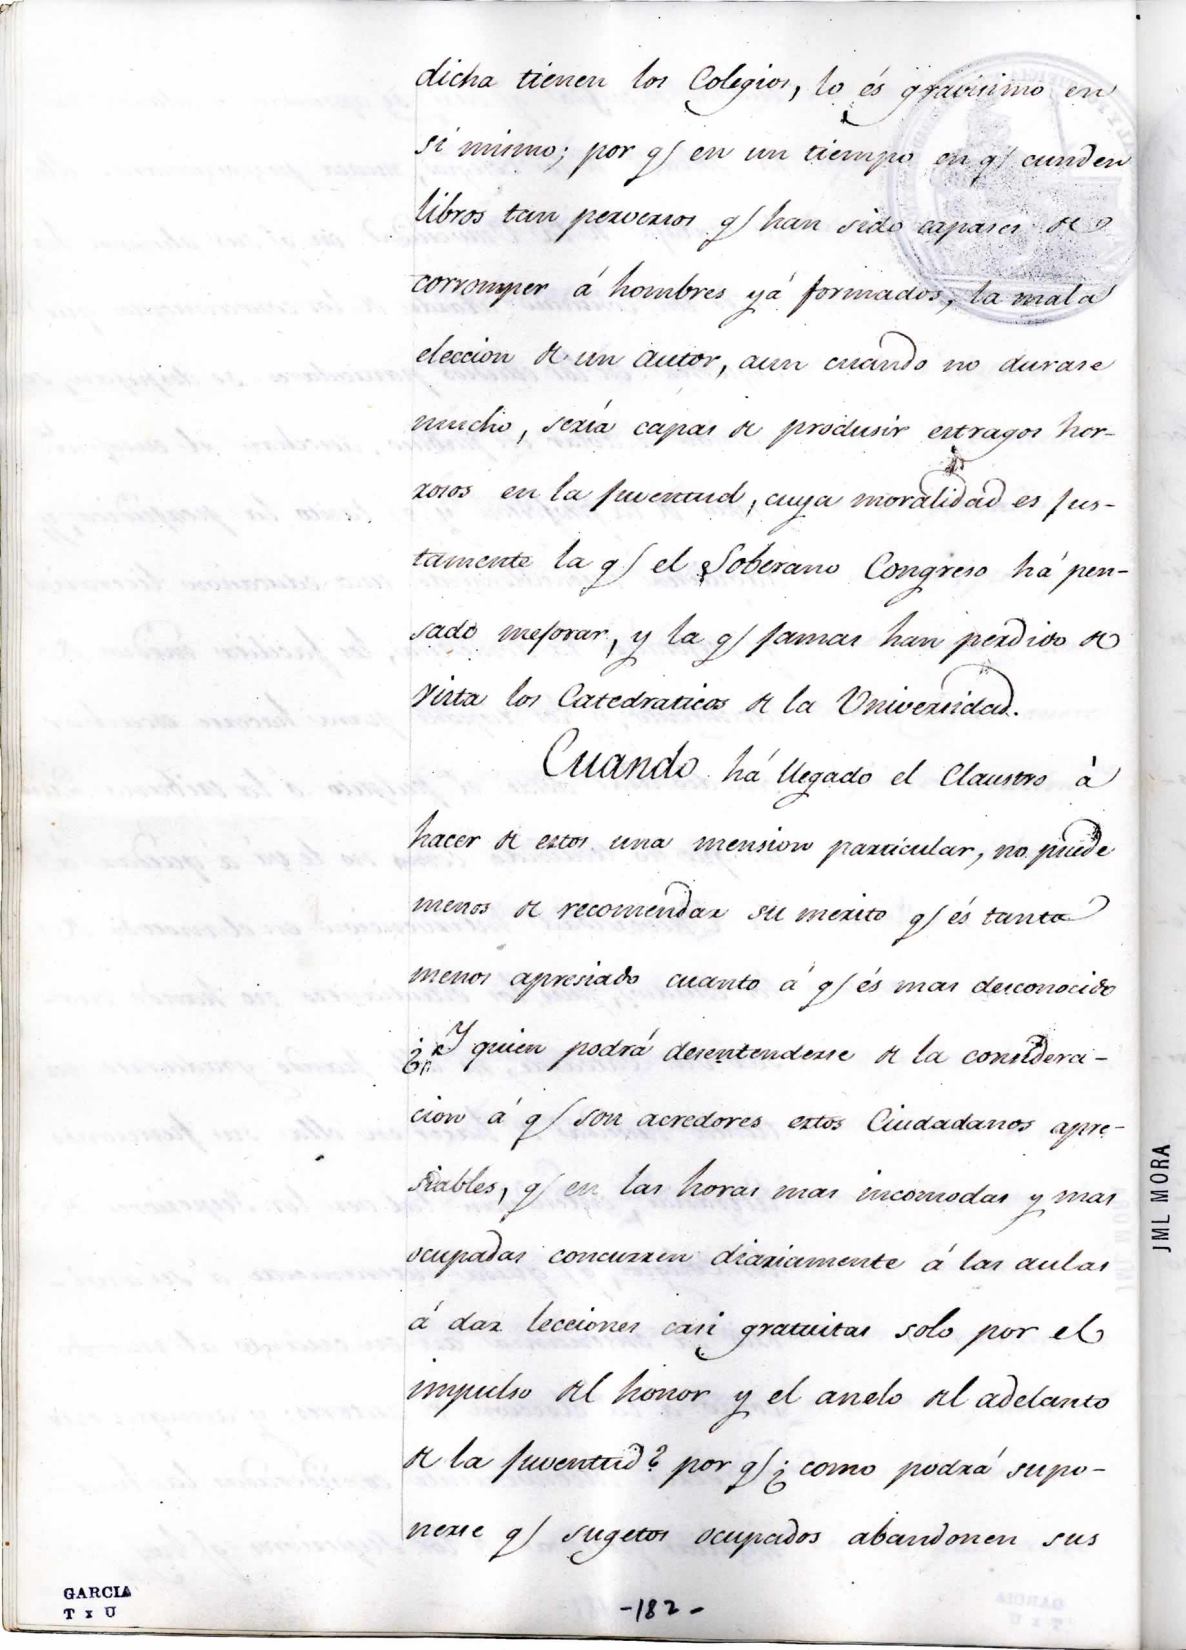 dicha tienen los Colegios, lo és gravisimo en
si mismo; por q/ en un tiempo en q/ cunden
libros tan perversos q/ han sido capases de
corromper á hombres yá formados, la mala
eleccion de un autor, aun cuando no durase
mucho, sería capas de produsir estragos hor-
rosos en la juventud, cuya moralidad es jus-
tamente la q/ el Soberano Congreso há pen-
sado mejorar, y la q/ jamas han perdido de
vista los Catedraticos de la Universidad.
Cuando há llegado el Claustro á
hacer de estos una mension particular, no puede
menos de recomendar su merito q/ és tanto
menos apresiado cuanto á q/ és mas desconocido
¿Y quien podrá desentenderse de la considera-
cion á q/ son acredores estos Ciudadanos apre-
siables, q/ en las horas mas incomodas y mas
ocupadas concurren diariamente á las aulas
á dar lecciones casi gratuitas solo por el
impulso del honor y el anelo del adelanto
de la juventud? por q/ ¿como podrá supo-
nerse q/ sugetos ocupados abandonen sus
-182-
GARCIA
T x U
JML MORA